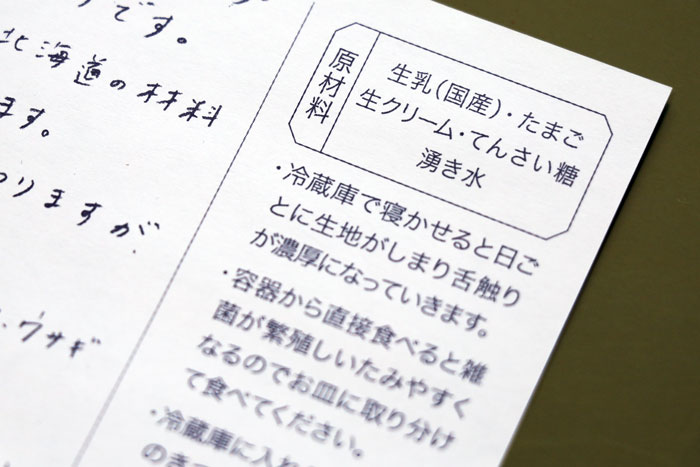 です。
北海道の材料
ます。
りますが、
ウサギ
原材料
生乳(国産)・たまご
生クリーム・てんさい糖
湧き水
・冷蔵庫で寝かせると日ご
とに生地がしまり舌触り
が濃厚になっていきます。
・容器から直接食べると雑
菌が繁殖しいたみやすく
なるのでお皿に取り分け
て食べてください。
・冷蔵庫に入れ
のき